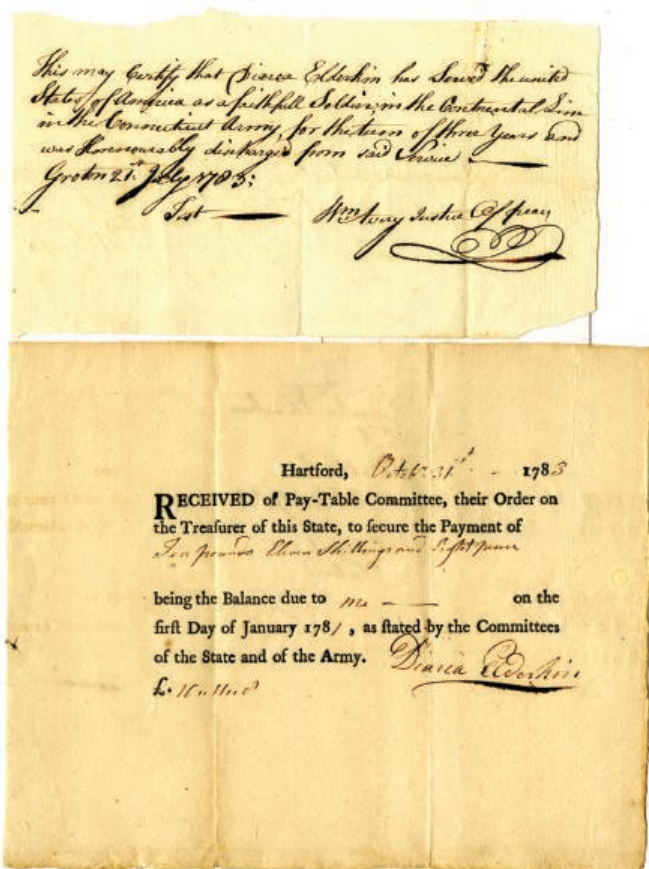 This may Certify that Diarca Elderkin has Served the united
States of America as a faithfull Soldier in the Continental Line
in the Connecticut Army, for the term of three Years and
was Honnourably discharged from said Service
Groton 21st July 1783:
Test Wm Avery Justice Of peace
Hartford, Octobr 31st 1783
RECEIVED of Pay-Table Committee, their Order on
the Treasurer of this State, to secure the Payment of
Ten pounds Eleven Shillings and Eight pence
being the Balance due to me on the
first Day of January 1781, as stated by the Committees
of the State and of the Army.
Diarca Elderkin
£. 10 11 8